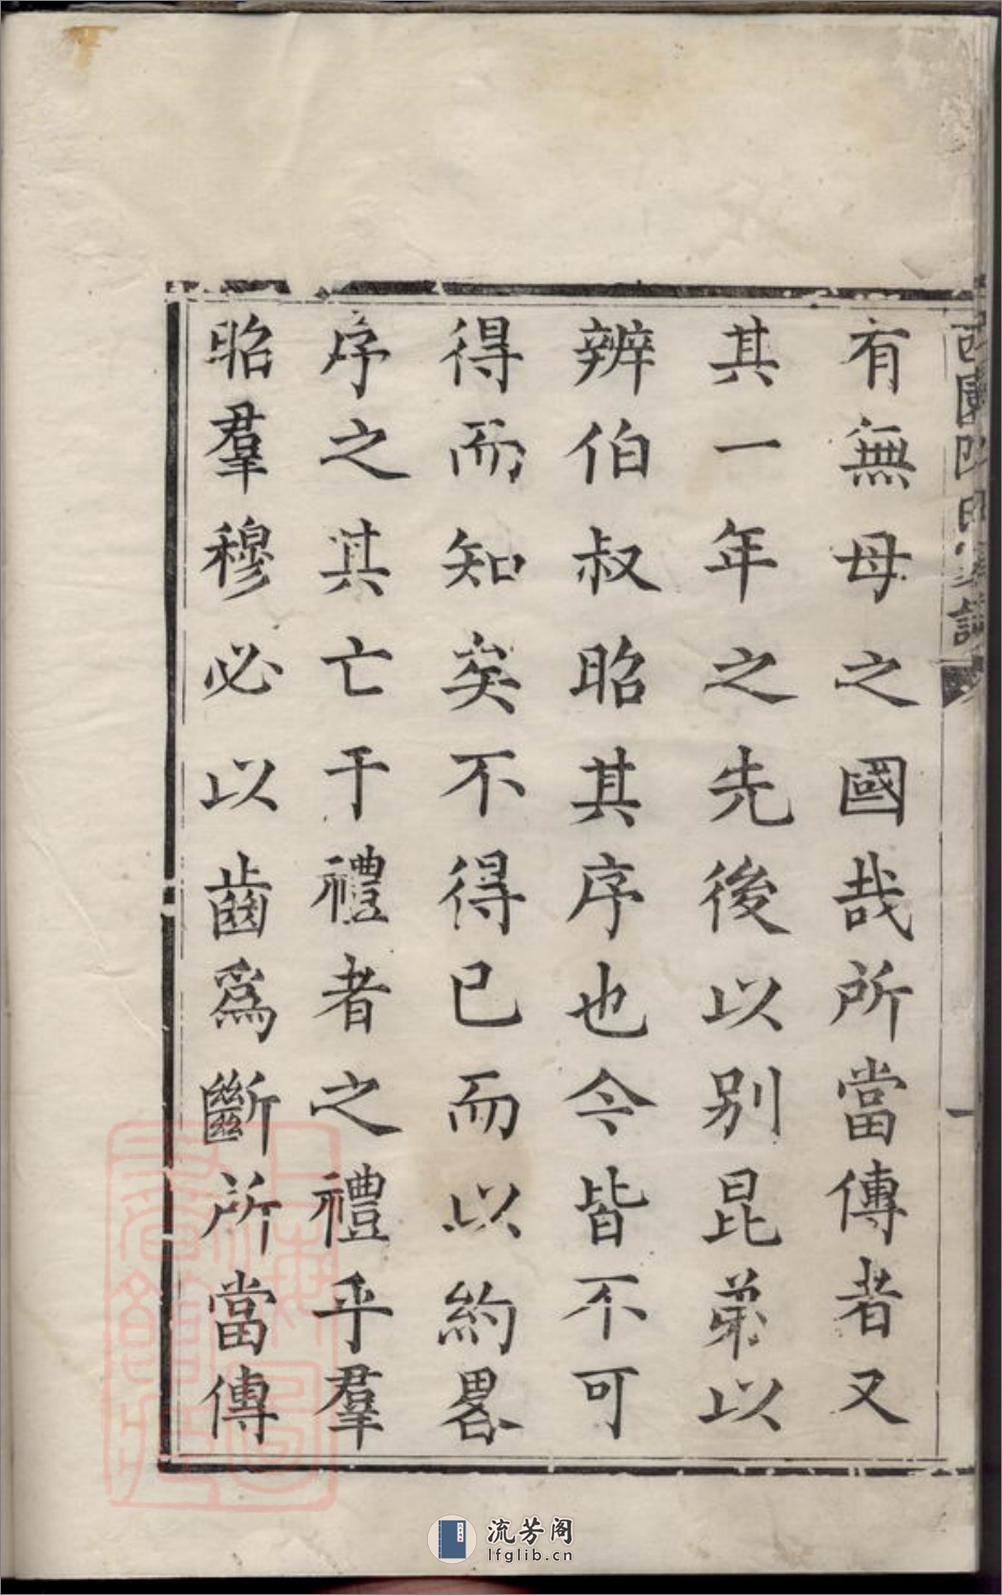 有無母之國哉所當傳者又
其一年之先後以别昆弟以
辨伯叔昭其序也今皆不可
得而知矣不得已而以約畧
序之其亡于禮者之禮乎羣
昭羣穆必以齒爲斷所當傳
一
上海圖書館藏
流芳阁
lfglib.cn